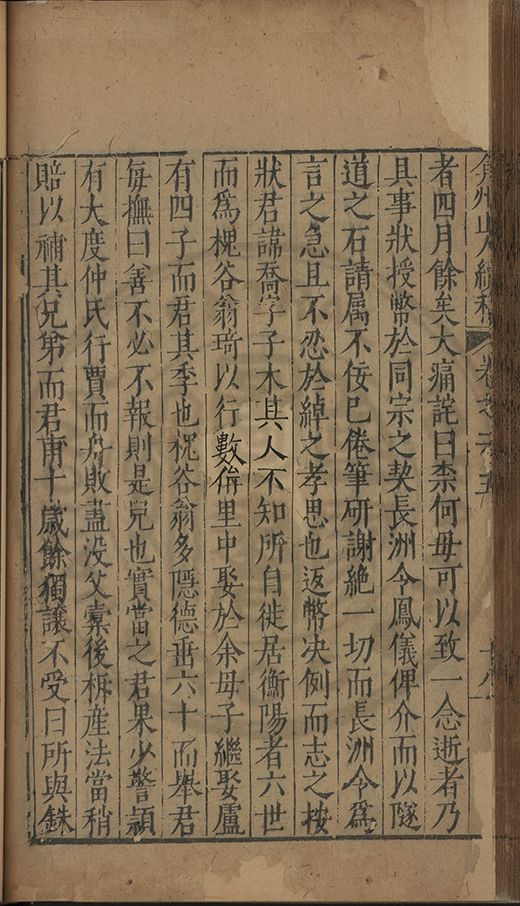 弇州山人續稿 卷之 五 十八
者四月餘矣大痛詫曰柰何毋可以致一念逝者乃
具事狀授幣於同宗之契長洲令鳳儀俾介而以隧
道之石請属不佞已倦筆研謝絶一切而長洲令爲
言之急且不忍於綽之孝思也返幣决例而志之按
狀君諱喬字子木其人不知所自徙居衡陽者六世
而爲槐谷翁琦以行數俯里中娶於余毋子繼娶盧
有四子而君其季也槐谷翁多隱德垂六十而舉君
每撫曰善不必不報則是兒也實當之君果少警頴
有大度仲氏行賈而舟敗蓋没父橐後柝産法當稍
賠以補其兄第而君甫十歲餘獨讓不受曰所與銖